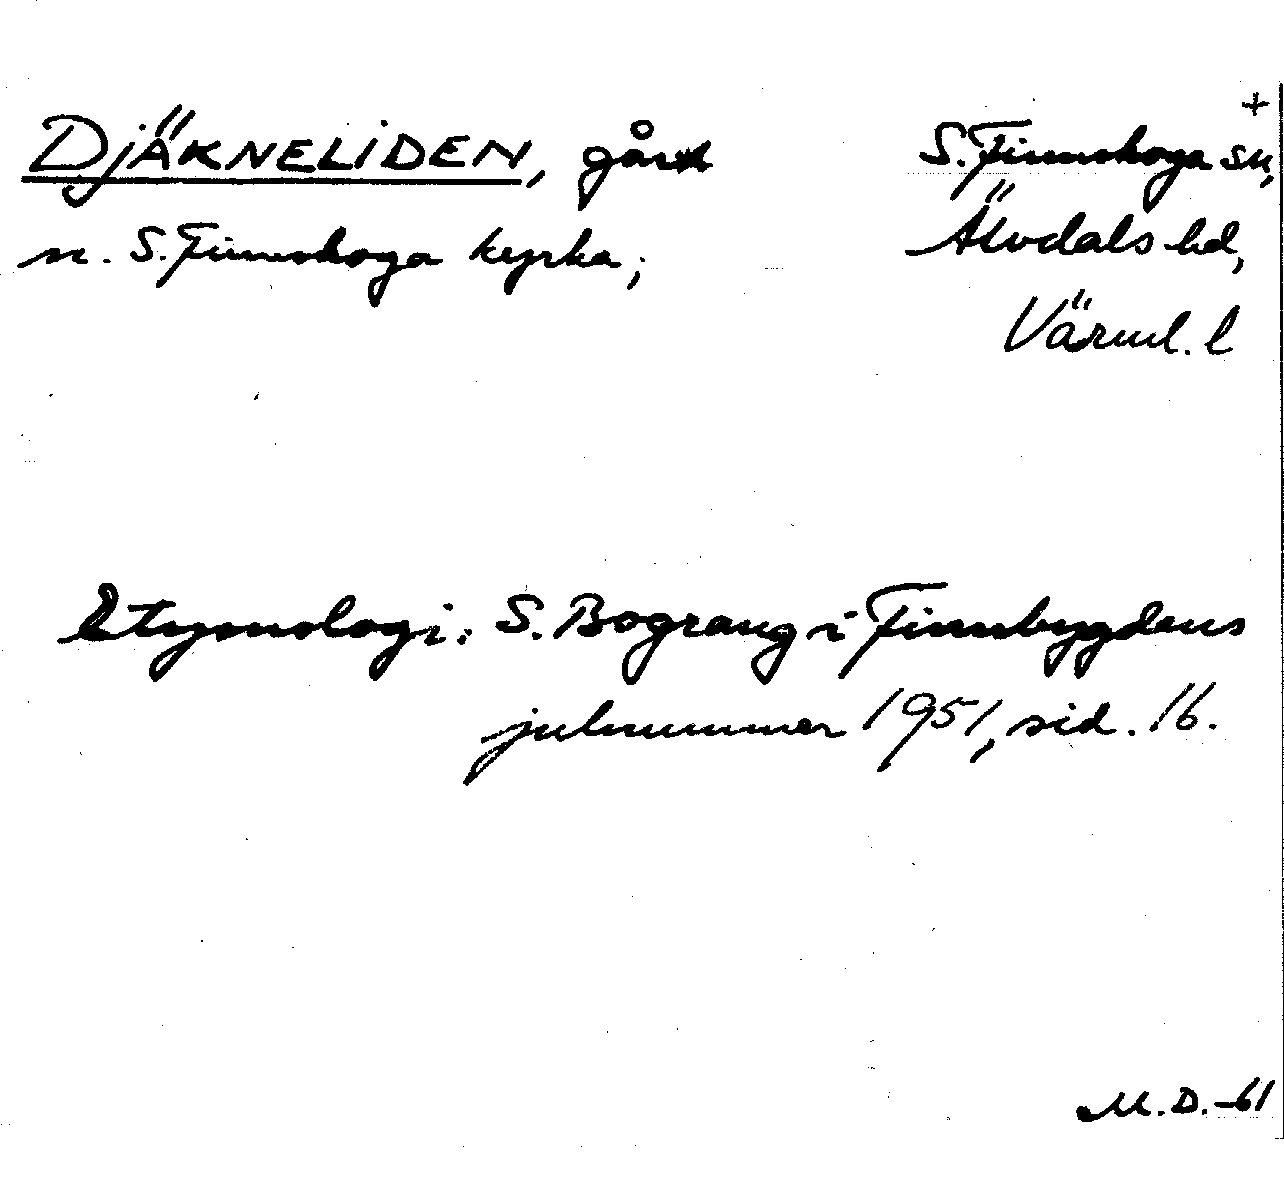 +
DJÄKNELIDEN, gård
S. Finnskoga sn,
n. S. Finnskoga kyrka;
Älvdals hd,
Värml. l
Etymologi: S. Bograng i Finnbygdens
julnummer 1951, sid. 16.
M.D.-61